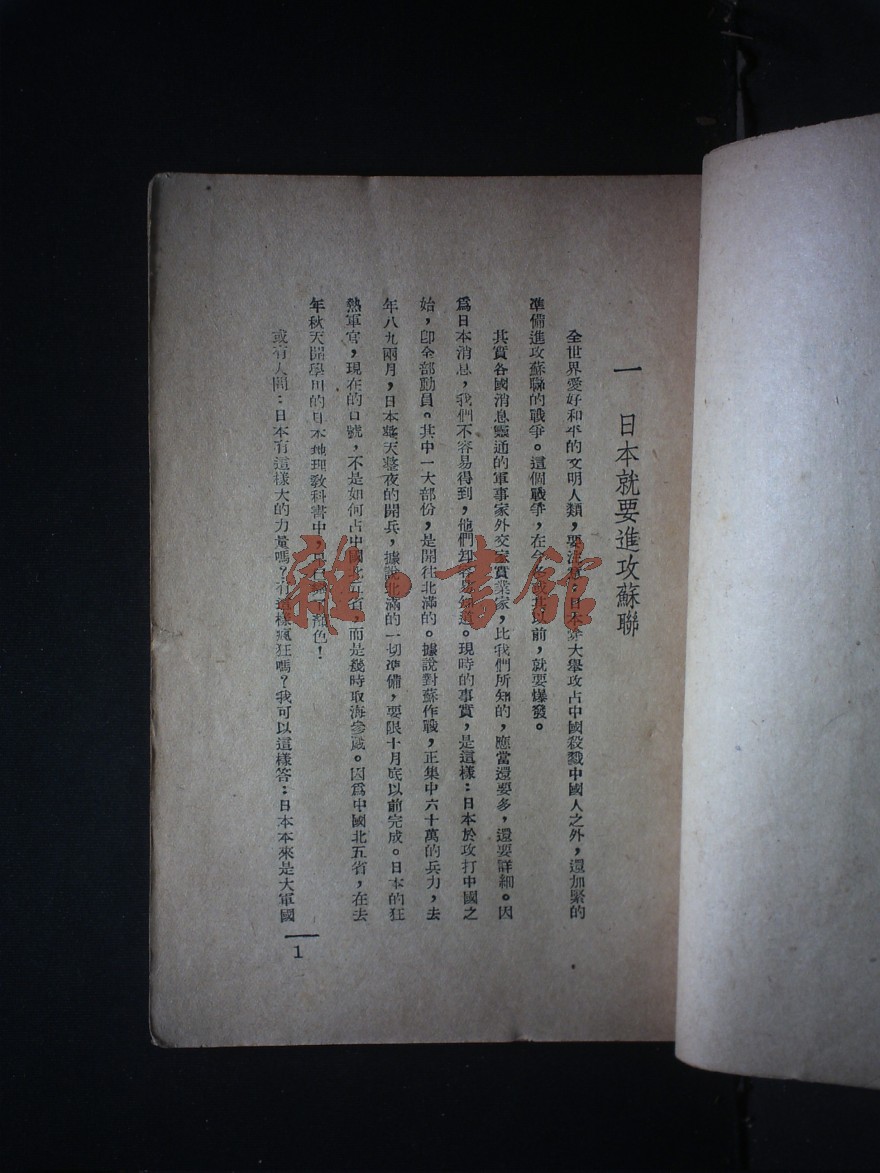 一 日本就要進攻蘇聯
全世界愛好和平的文明人類，要注意：日本除大舉攻占中國殺戮中國人之外，還加緊的
準備進攻蘇聯的戰爭。這個戰爭，在今冬或其以前，就要爆發。
其實各國消息靈通的軍事家外交家實業家，比我們所知的，應當還要多，還要詳細。因
爲日本消息，我們不容易得到，他們却容易知道。現時的事實，是這樣：日本於攻打中國之
始，卽全部動員。其中一大部份，是開往北滿的。據說對蘇作戰，正集中六十萬的兵力，去
年八九兩月，日本整天整夜的開兵，據說北滿的一切準備，要限十月底以前完成。日本的狂
熱軍官，現在的口號，不是如何占中國北五省，而是幾時取海參崴。因爲中國北五省，在去
年秋天開學用的日本地理敎科書中，顏色！
或有人問：日本有這樣大的力量嗎？有這樣瘋狂嗎？我可以這樣答：日本本來是大軍國
1
雜·書館